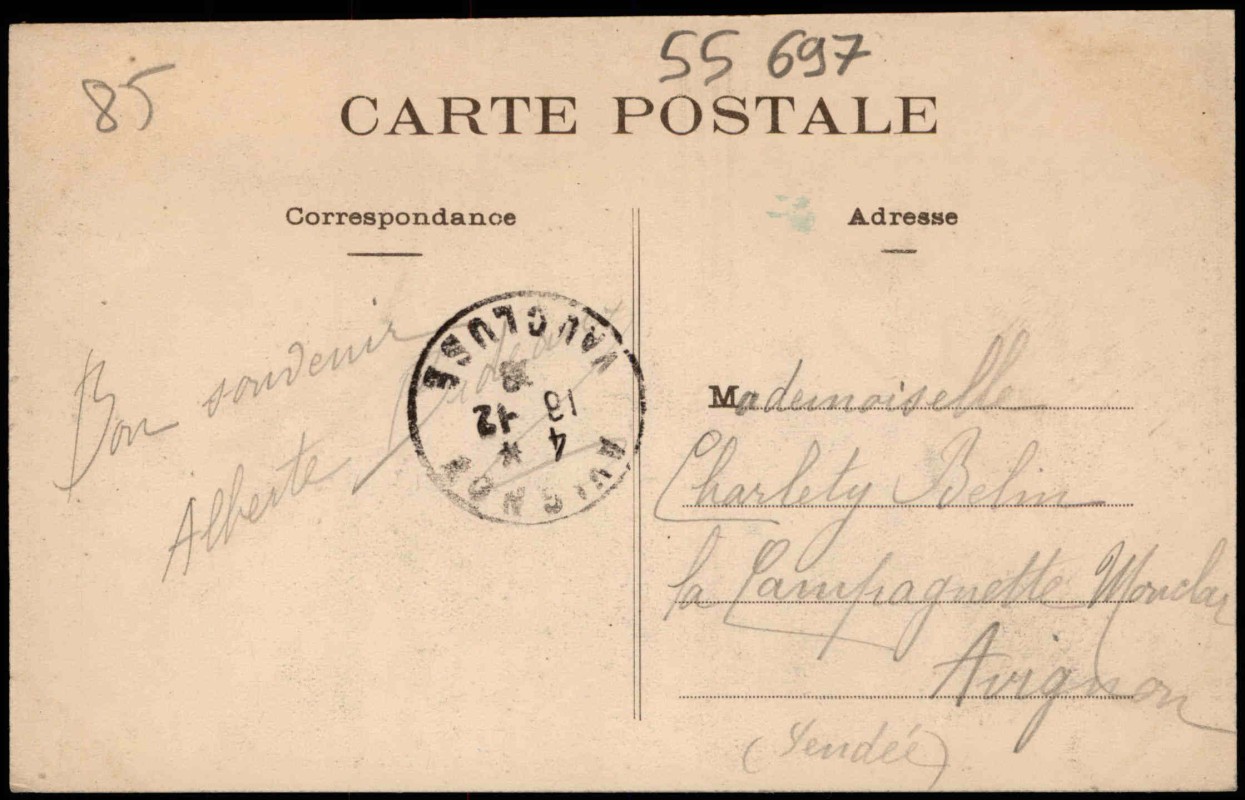 55 697
85
CARTE POSTALE
Correspondance
Adresse
Bon souvenir
Alberte
AVIGNON
VAUCLUSE
4
18
12
Mademoiselle
Charlety Belin
la Campagnette Monclar
Avignon
(Vendée)